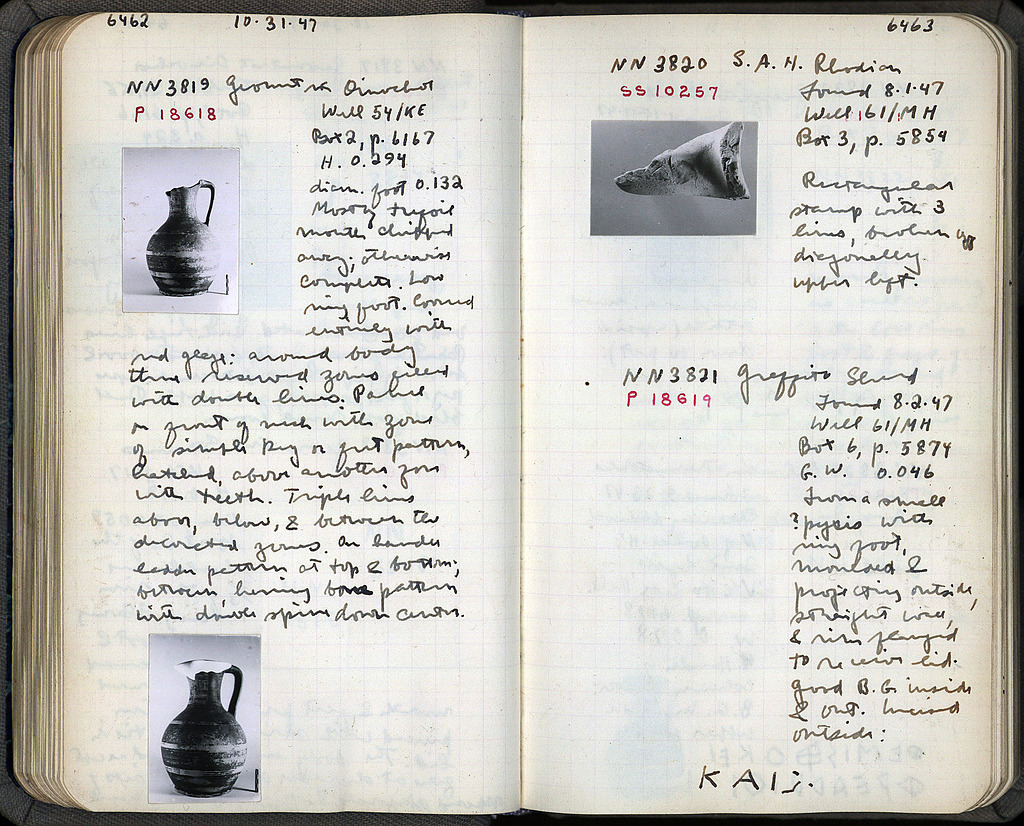 6462 10·31·47
NN3819 Geometric Oinochoe
P 18618
Well 54/KE
Box 2, p. 6167
H. 0.294
diam. foot 0.132
Mostly trefoil
mouth chipped
away; otherwise
complete. Low
ring foot. Covered
entirely with
red glaze: around body
three reserved zones filled
with double lines. Panel
on front of neck with zone
of simple key or fret pattern,
hatched, above another zone
with teeth. Triple lines
above, below, & between the
decorated zones. On handle
ladder pattern at top & bottom;
between herring bone pattern
with double spine down center.
6463
NN 3820 S.A.H. Rhodian
SS 10257
Found 8·1·47
Well 61/MH
Box 3, p. 5854
Rectangular
stamp with 3
lines, broken off
diagonally
upper left.
NN3821 Graffito Sherd
P 18619
Found 8·2·47
Well 61/MH
Box 6, p. 5874
G. W. 0.046
From a small
? pyxis with
ring foot,
moulded &
projecting outside,
straight wall,
& rim flanged
to receive lid.
Good B.G. inside
& out. Incised
outside:
ΚΑΙ